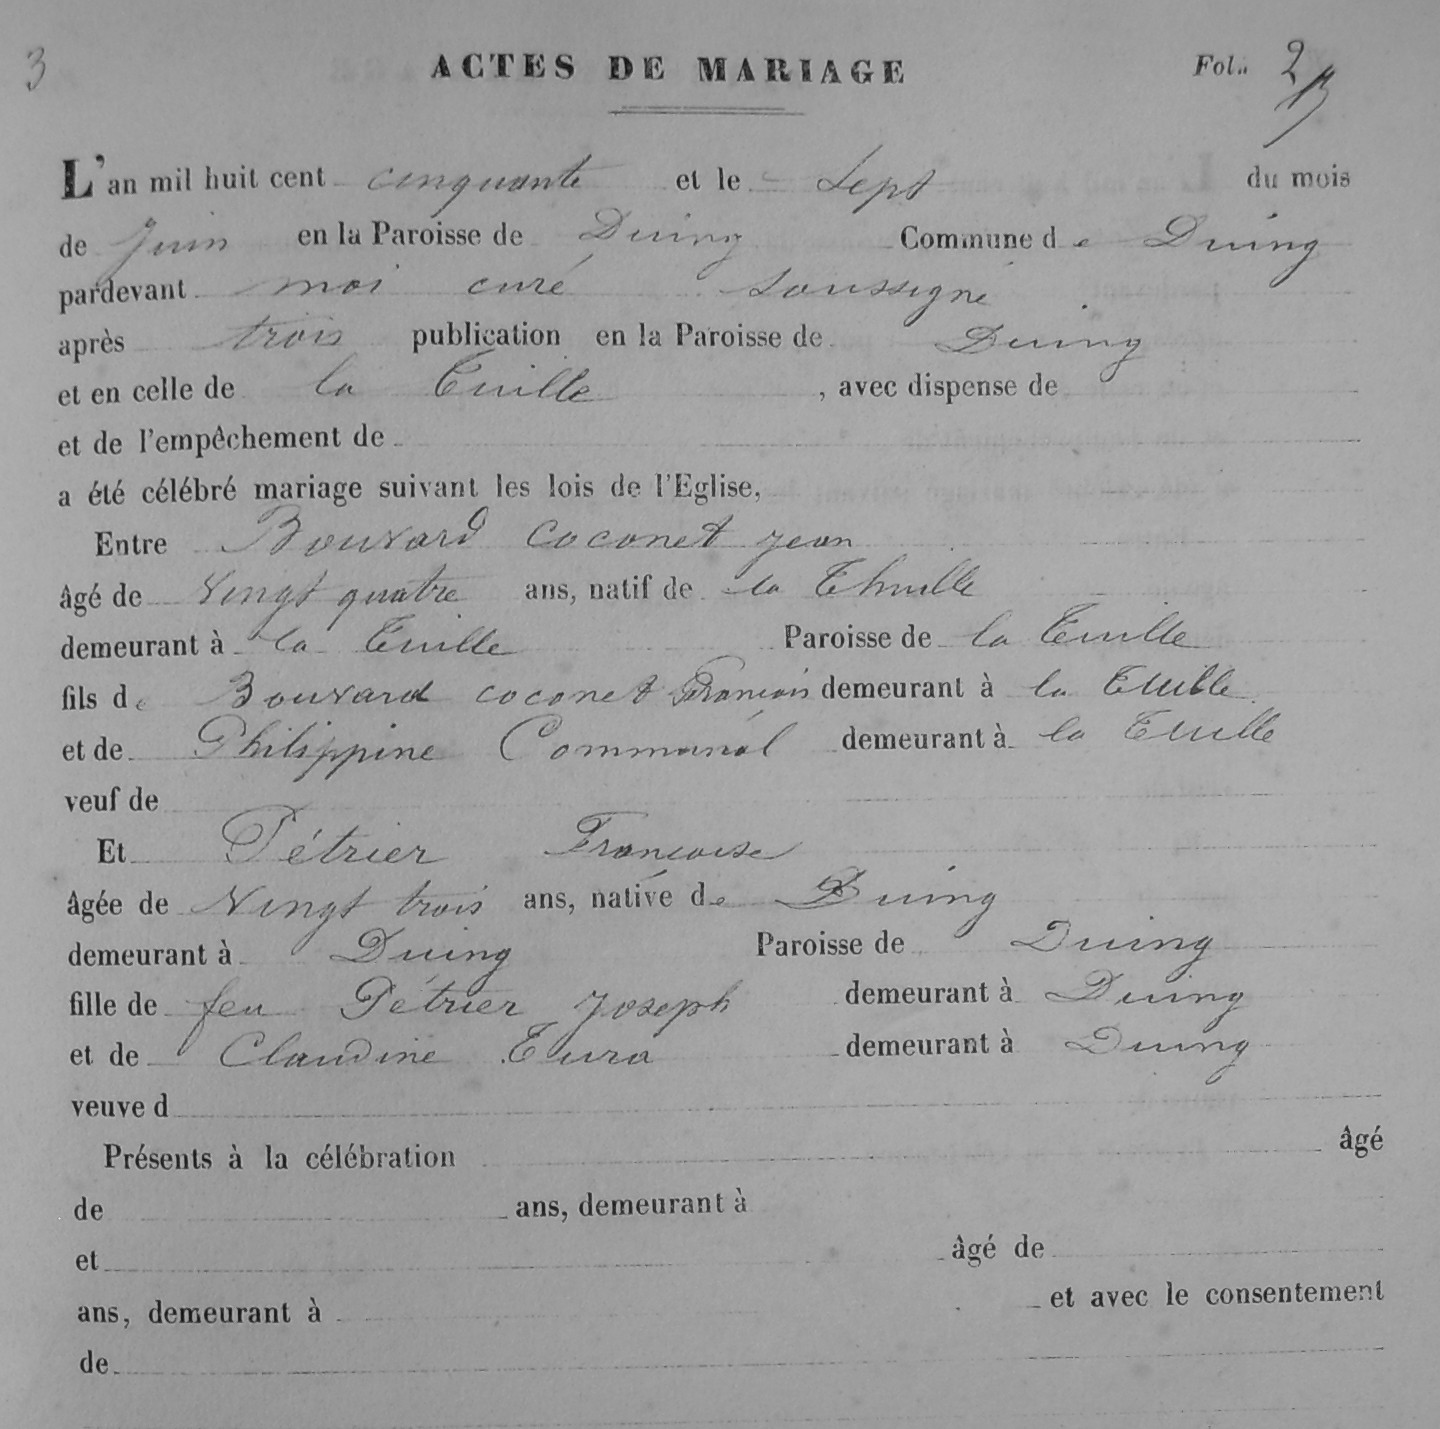 3 ACTES DE MARIAGE Fol. 2
L'an mil huit cent cinquante et le Sept du mois
de Juin en la Paroisse de Duing Commune de Duing
pardevant moi curé soussigné
après trois publication en la Paroisse de Duing
et en celle de la Tuille , avec dispense de
et de l'empêchement de
a été célébré mariage suivant les lois de l'Eglise,
Entre Bouvard Coconet Jean
âgé de Vingt quatre ans, natif de la Thuille
demeurant à la Tuille Paroisse de la Tuille
fils de Bouvard coconet François demeurant à la Tuille
et de Philippine Communal demeurant à la Tuille
veuf de
Et Pétrier Françoise
âgée de Vingt trois ans, native de Duing
demeurant à Duing Paroisse de Duing
fille de feu Pétrier Joseph demeurant à Duing
et de Claudine Tura demeurant à Duing
veuve d
Présents à la célébration âgé
de ans, demeurant à
et âgé de
ans, demeurant à et avec le consentement
de